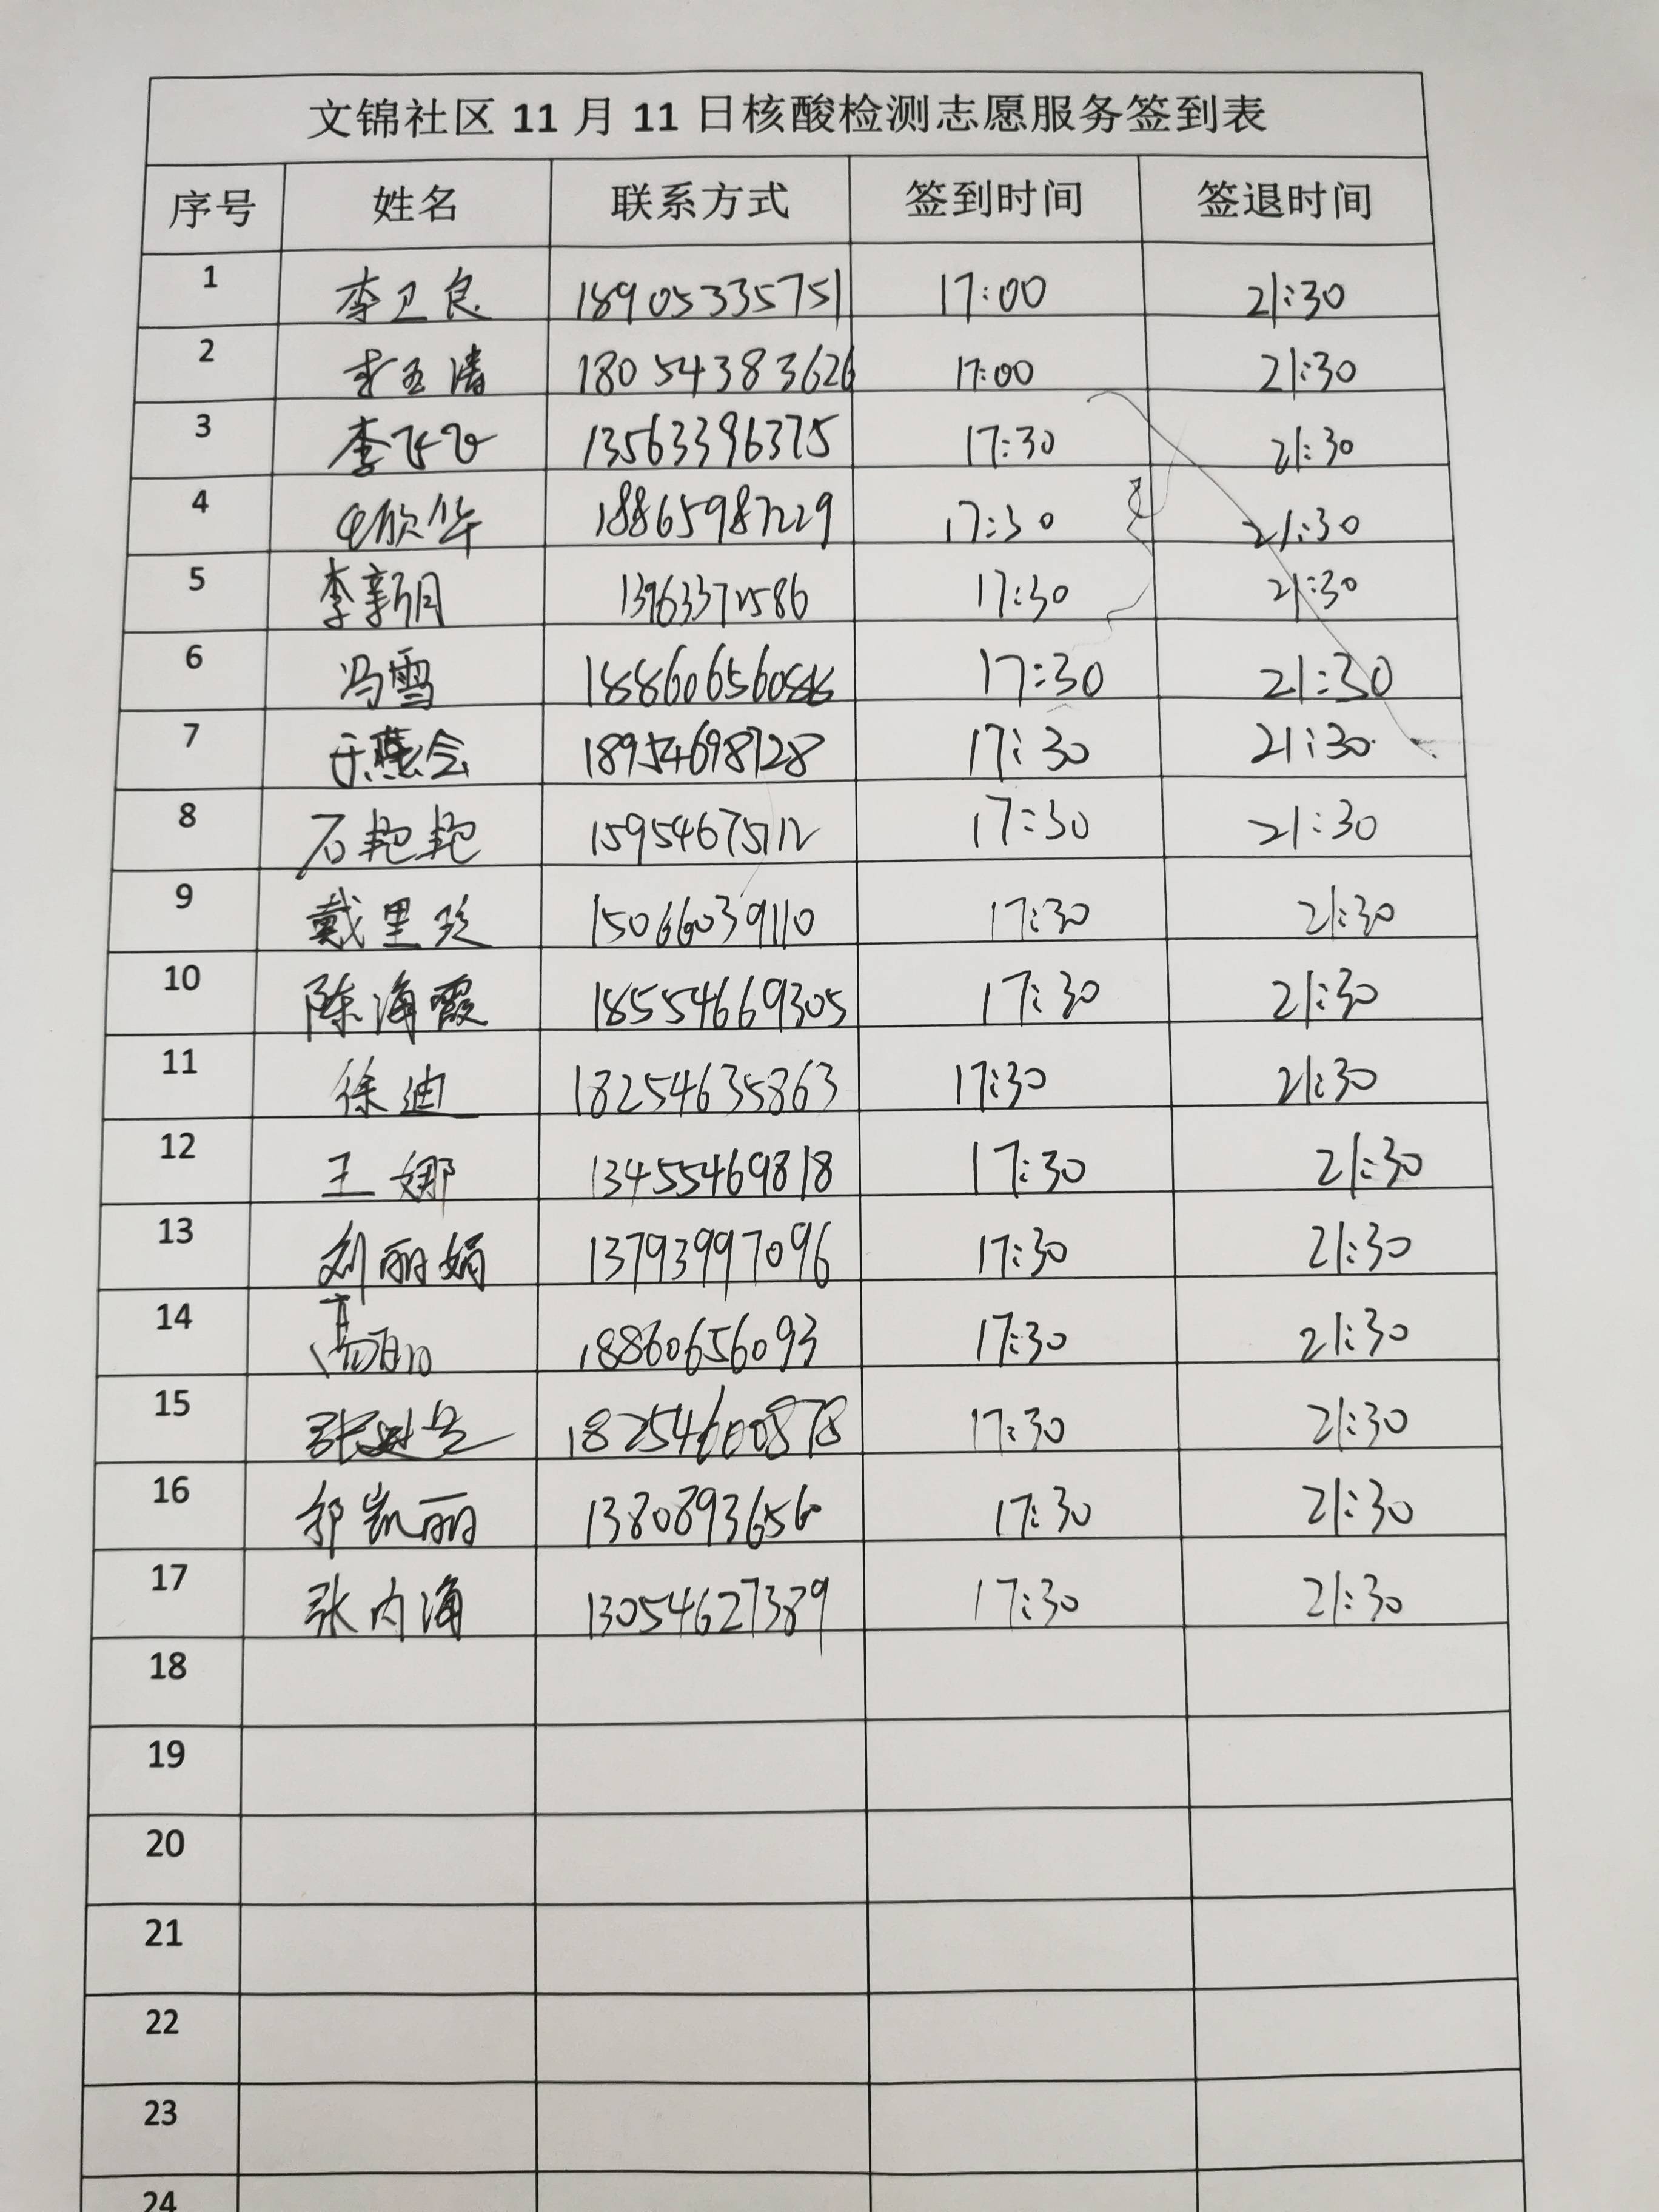 文锦社区 11 月 11 日核酸检测志愿服务签到表
序号 姓名 联系方式 签到时间 签退时间
1 李卫良 18905335751 17:00 21:30
2 18054383626 17:00 21:30
3 李飞飞 13563396375 17:30 21:30
4 18865987229 17:30 21:30
5 李新月 17:30 21:30
6 冯雪 17:30 21:30
7 于燕会 18954698728 17:30 21:30
8 石艳艳 15954675112 17:30 21:30
9 戴里珍 15066039110 17:30 21:30
10 陈海霞 18554669305 17:30 21:30
11 徐迪 18254635863 17:30 21:30
12 王娜 13455469818 17:30 21:30
13 刘丽娟 13793997096 17:30 21:30
14 18860656093 17:30 21:30
15 18254600878 17:30 21:30
16 郭凯丽 1380893656 17:30 21:30
17 张内海 13054627389 17:30 21:30
18
19
20
21
22
23
24